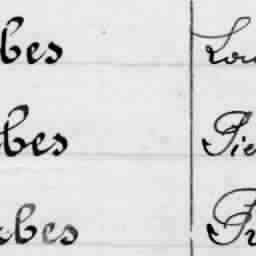 bes Lou
bes Pie
bes Fr